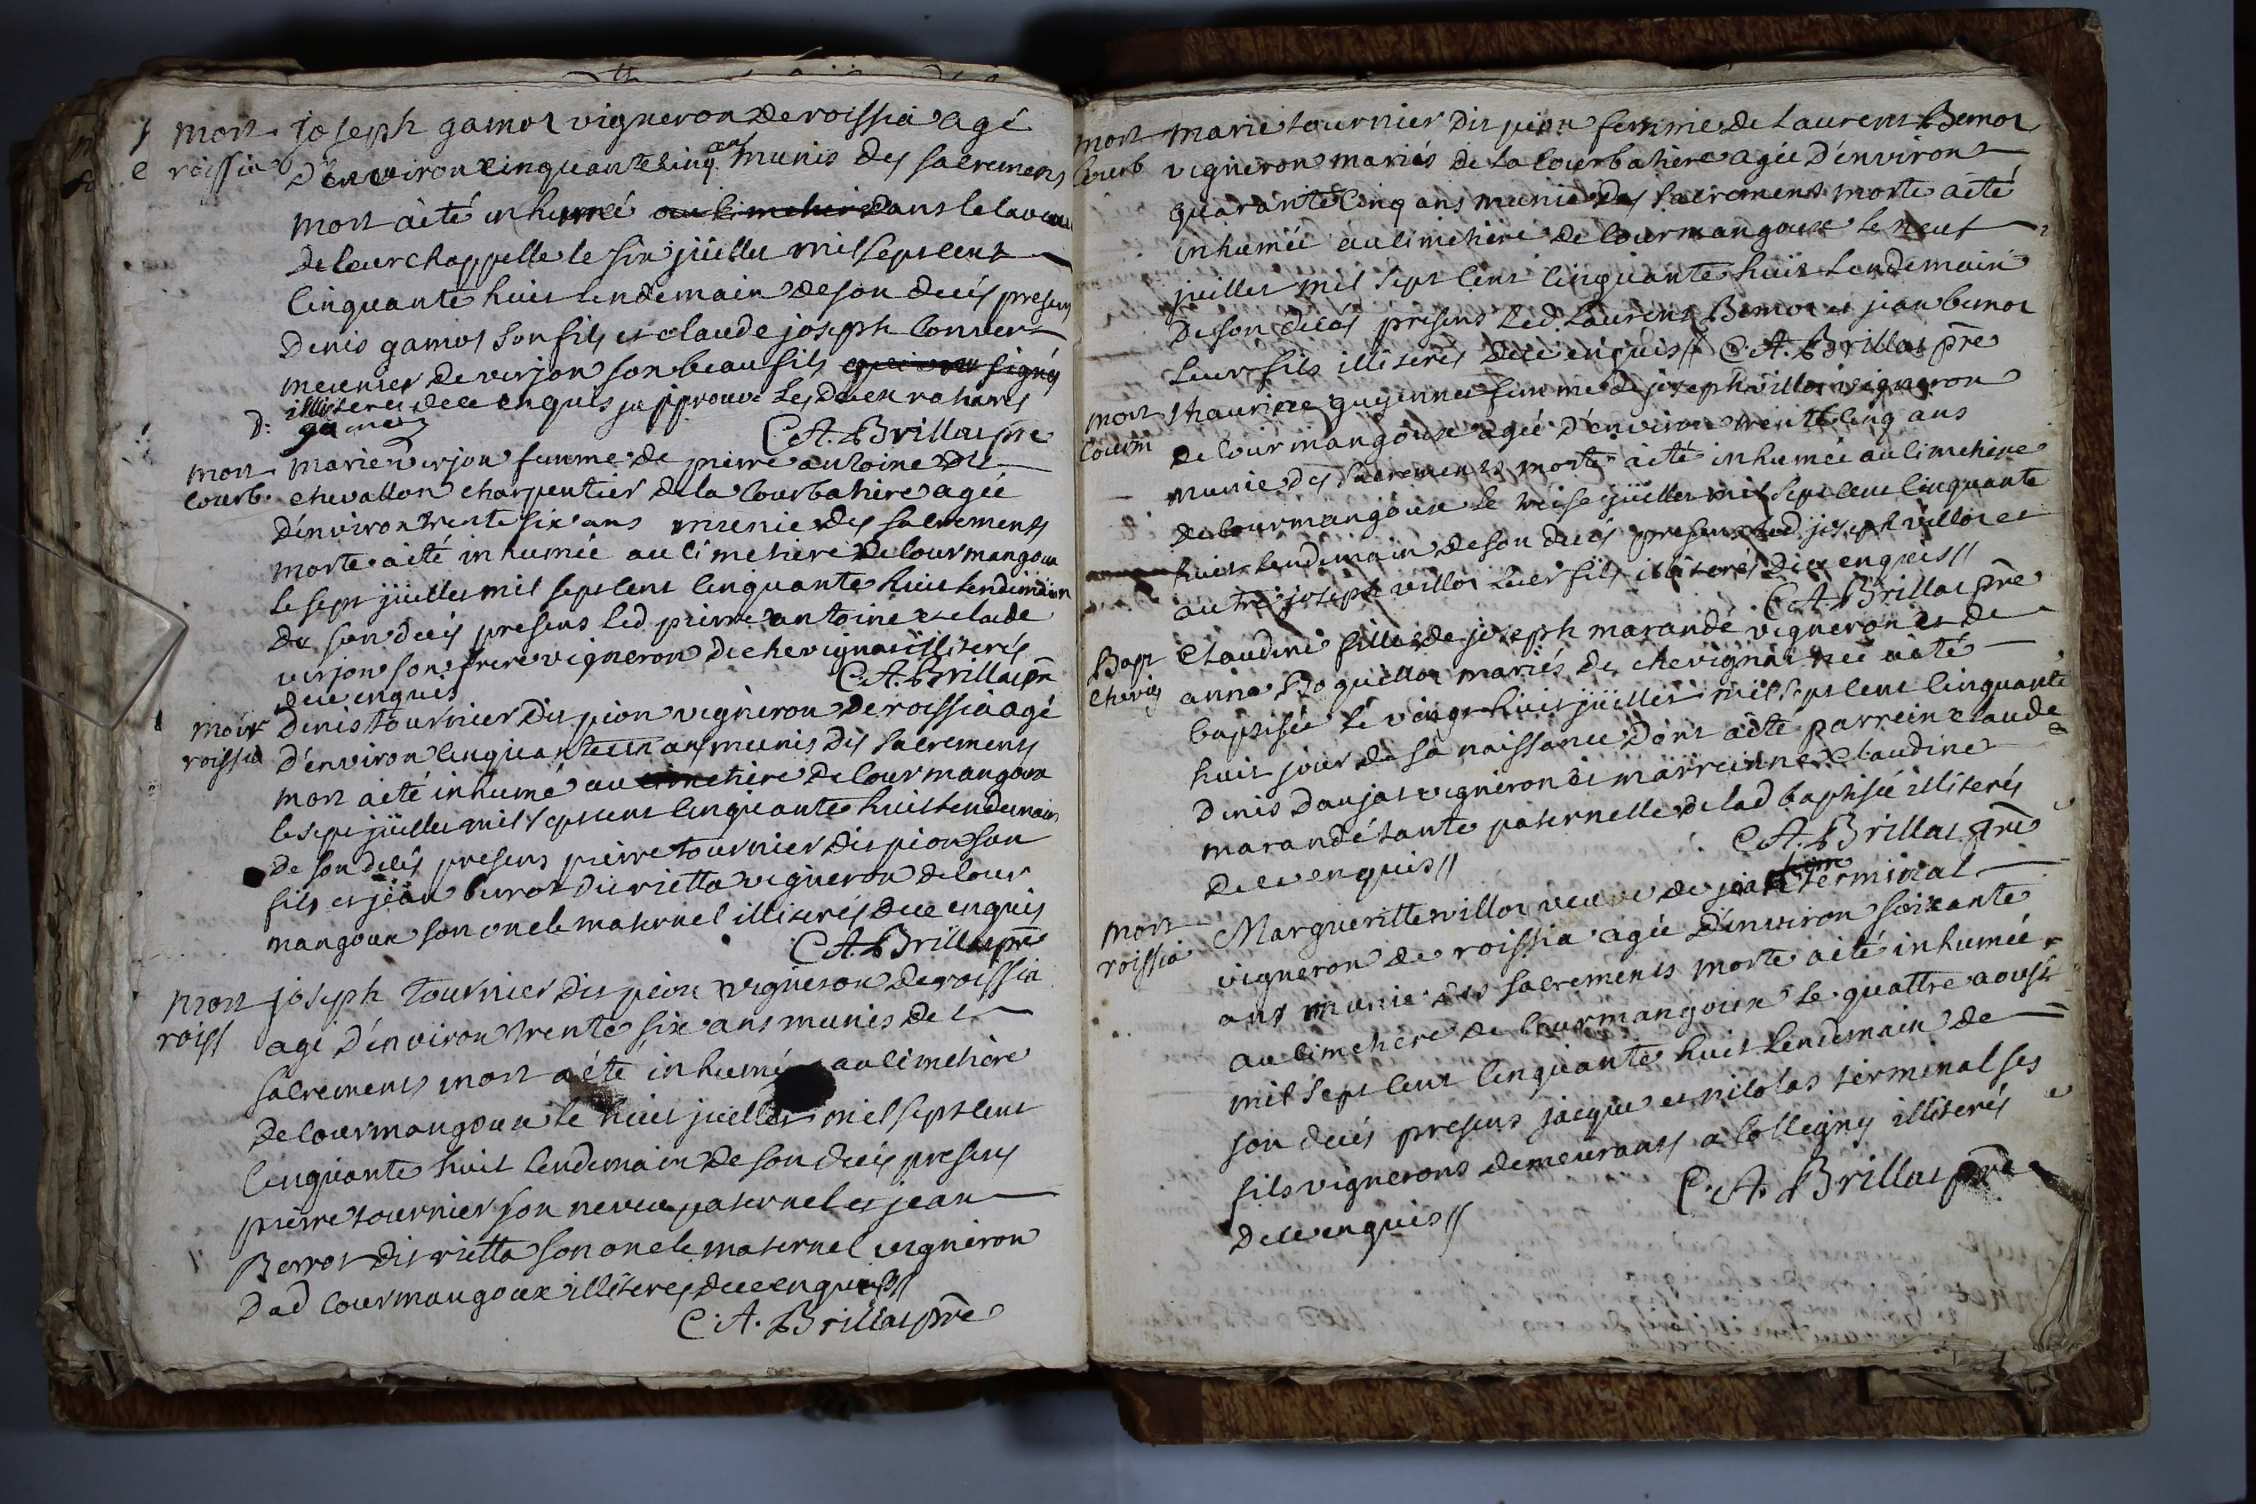 mort joseph gamot vigneron de roissia agé
roissia d'environ cinquante cinq ans munis des sacremens
mort a été inhumé au cimetier dans le caveau
de leur chappelle le six jüillet mil sept cent
cinquante huit lendemain de son decés presens
Denis gamot son fils et claude joseph convert
meunier de verjon son beau fils qui ont signés
illiterés de ce enquis je approuve les deux ratures
D: gamot
C A. Brillat pre
mort marie verjon femme de pierre antoine dit
courb chevallon charpentier de la courbatiere agée
d'environ trente six ans munie des sacrements
morte a été inhumée au cimethiere de courmangoux
le sept jüillet mil sept cent cinquante huit lendemain
de son decés presens led pierre antoine et claude
verjon son frere vigneron de chevignat illiterés
de ce enquis C. A. Brillat pre
mort Denis tournier dit pion vigneron de roissia agé
roissia d'environ cinquante un ans munis des sacremens
mort a été inhumé au cimethiere de courmangoux
le sept jüillet mil sept cent cinquante huit lendemain
de son decés presens pierre tournier dit pion son
fils et jean berrot dit rietta vigneron de cour
mangoux son oncle maternel illiterés de ce enquis
C A. Brillat pre
mort joseph tournier dit pion vigneron de roissia
roiss agé d'environ trente six ans munis des
sacrements mort a été inhumé au cimethiere
de courmangoux le huit juillet mil sept cent
cinquante huit lendemain de son decés presens
pierre tournier son neveu paternel et jean
Berrot dit rietta son oncle maternel vigneron
dud courmangoux illiterés de ce enquis //
C. A. Brillat pre
mort marie tournier dit pion femme de Laurent Benoi
Courb vigneron mariés de la Courbatiere agée d'environ
quarante cinq ans munie des sacremens morte a été
inhumée au cimethiere de courmangoux le neuf
juillet mil sept cent cinquante huit lendemain
de son decés presens led. Laurent Benoi et jean benoi
leur fils illiterés de ce enquis // C. A. Brillat pre
mort thauriere guyennet femme de joseph villot vigneron
Courm de courmangoux agée d'environ trente cinq ans
munie des sacrements morte a été inhumée au cimethiere
de courmangoux le treise jüillet mil sept cent cinquante
huit lendemain de son decés presens led joseph villot et
autre joseph villot leur fils illiterés de ce enquis //
C A. Brillat pre
Bapt Claudine fille de joseph marandé vigneron et de
chevig anne boquillot mariés de chevignat née a été
baptisée le vingt huit jüillet mil sept cent cinquante
huit jour de sa naissance dont a été parrein claude
Denis daujat vigneron et marreinne Claudine
marandé tante paternelle de lad baptisée illiterés
de ce enquis // C A. Brillat pre
mort Margueritte villot veuve de jean terminal
roissia vigneron de roissia agée d'environ soixante
ans munie des sacrements morte a été inhumée
au cimethiere de Courmangoux le quattre aoust
mil sept cent cinquante huit lendemain de
son decés presens jacque et nicolas terminal ses
fils vignerons demeurants a Colligny illiterés
de ce enquis // C. A. Brillat pre